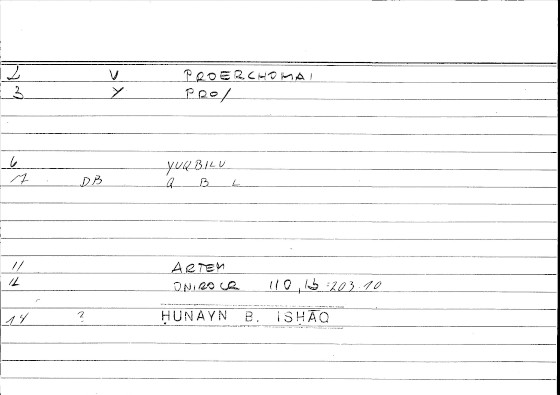 2 V PROERCHOMAI
3 Y PRO/
6 YUQBILU
7 DB Q B L
11 ARTEM
12 ONIROCR 110,15 203.10
14 ? ḤUNAYN B. ISḤĀQ